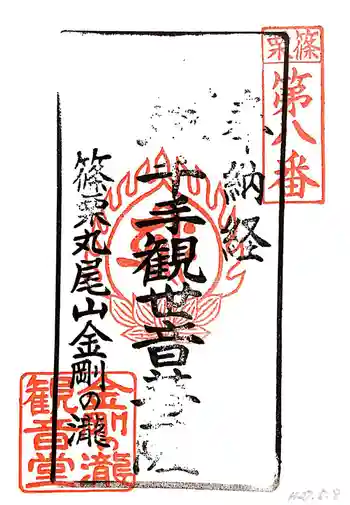 篠栗
第八番
奉納経
十手観世音菩薩
篠栗丸尾山金剛の瀧
金剛の瀧
観音堂
H27.5.9